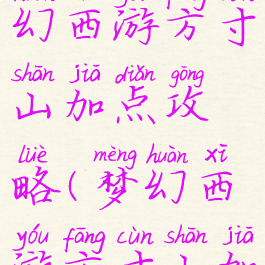 幻西游方寸
shān jiā diǎn gōng
山加点攻
lüè mèng huàn xī
略(梦幻西
yóu fāng cùn shān jiā
游方寸山加